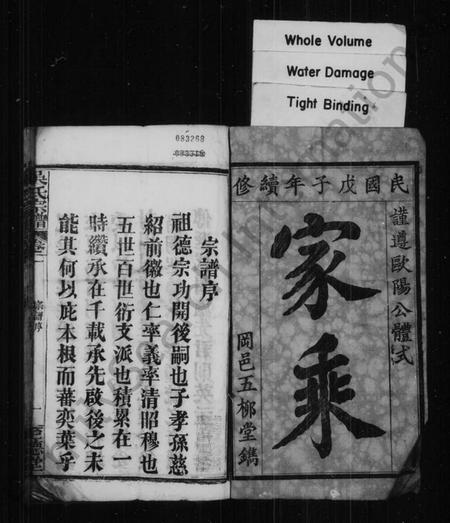 Whole Volume
Water Damage
Tight Binding
083268
083318
民國戊子年續修
謹遵歐陽公體式
家乘
岡邑五柳堂鐫
宗譜序
祖德宗功開後嗣也子孝孫慈
紹前徽也仁率義率清昭穆也
五世百世衍支派也積累在一
時纘承在千載承先啟後之未
能其何以庇本根而蕃奕葉乎
吳氏宗譜
宗譜序
一